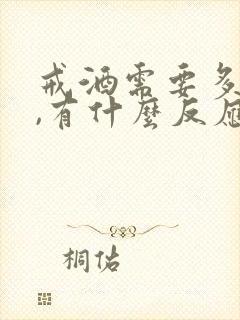 戒酒需要多
,有什麼反应
桐佑